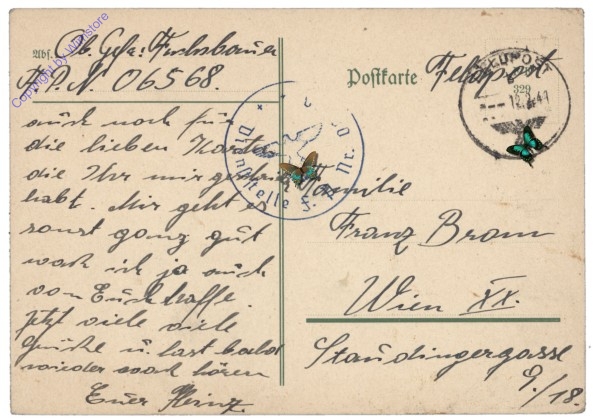 Copyright by Winistore
Abs. Ob. Gefr. Fuchsbauer
F.P.N. 06568.
Postkarte Feldpost
FELDPOST
329
Dienststelle F. P. Nr.
auch noch für
die lieben Karten
die Ihr mir
habt. Mir geht es
sonst ganz gut
was ich ja auch
von Euch hoffe.
Jetzt viele viele
Grüsse u. lasst bald
wieder was hören
Euer Heinz.
Familie
Franz Brom
Wien XX.
Staudingergasse
9./18.